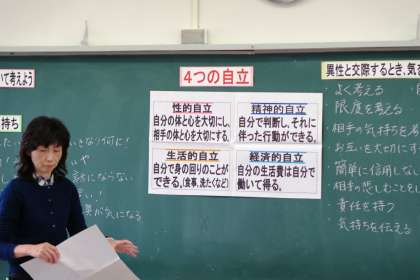 いて考えよう
4つの自立
異性と交際するとき、気を
持ち
性的自立
自分の体と心を大切にし、
相手の体と心を大切にする。
精神的自立
自分で判断し、それに
伴った行動ができる。
生活的自立
自分で身の回りのことが
できる。(食事、洗たくなど)
経済的自立
自分の生活費は自分で
働いて得る。
よく考える
限度を考える
相手の気持ちを考
お互いを大切にす
簡単に信用しない
相手の悲しむことを
責任を持つ
気持ちを伝える
きなり何に!
にならない
が気になる